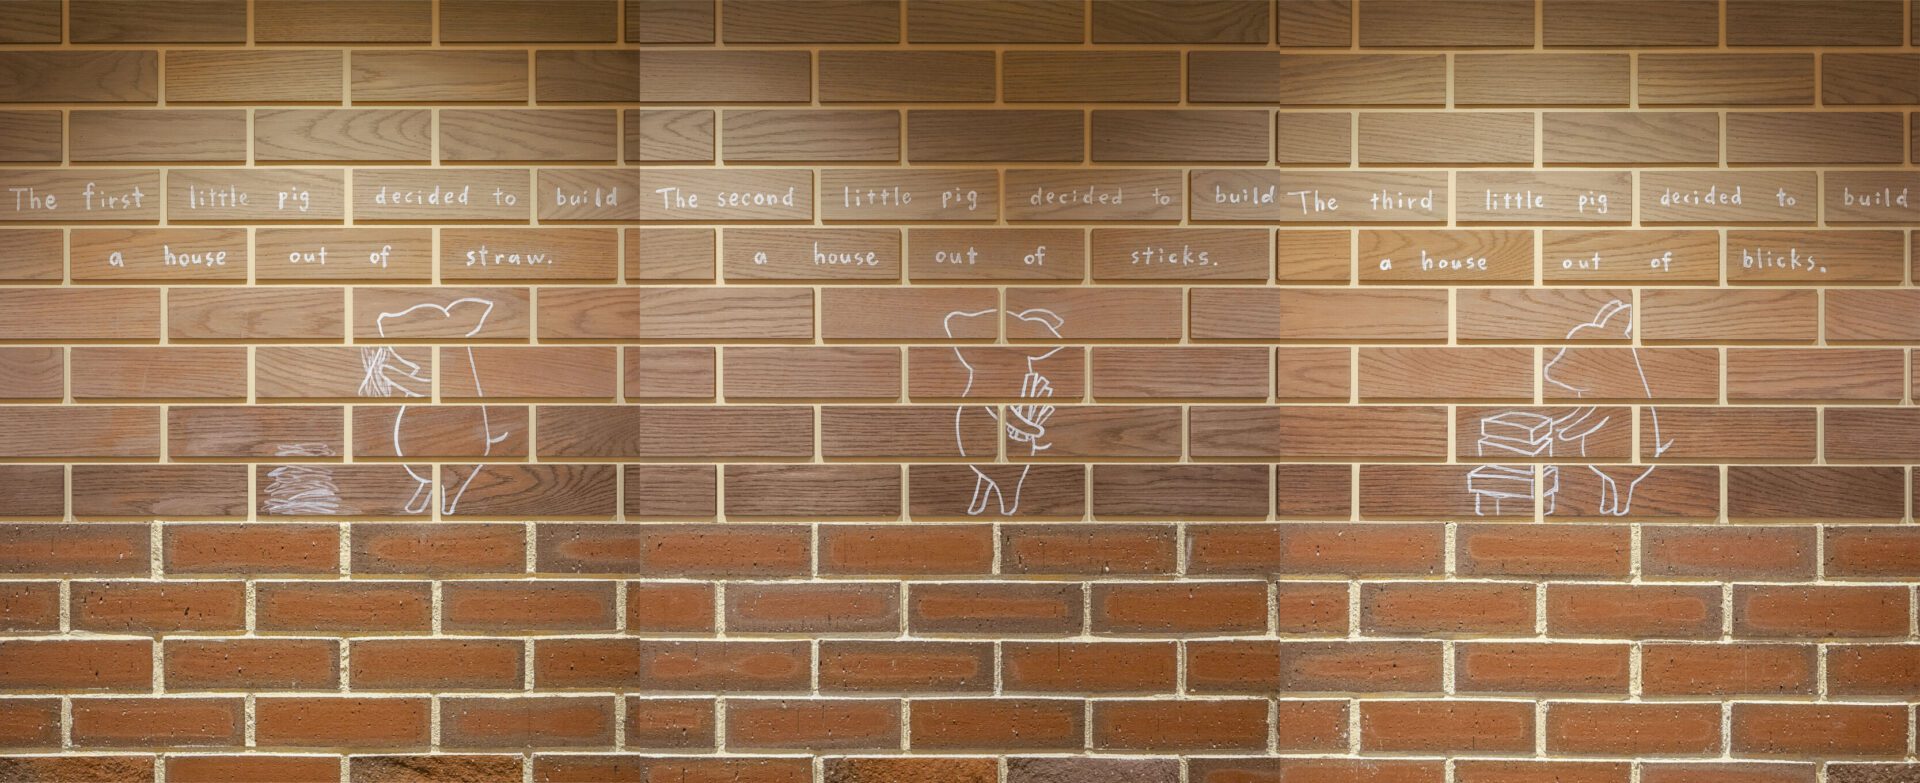 The first little pig decided to build
a house out of straw.
The second little pig decided to build
a house out of sticks.
The third little pig decided to build
a house out of blicks.